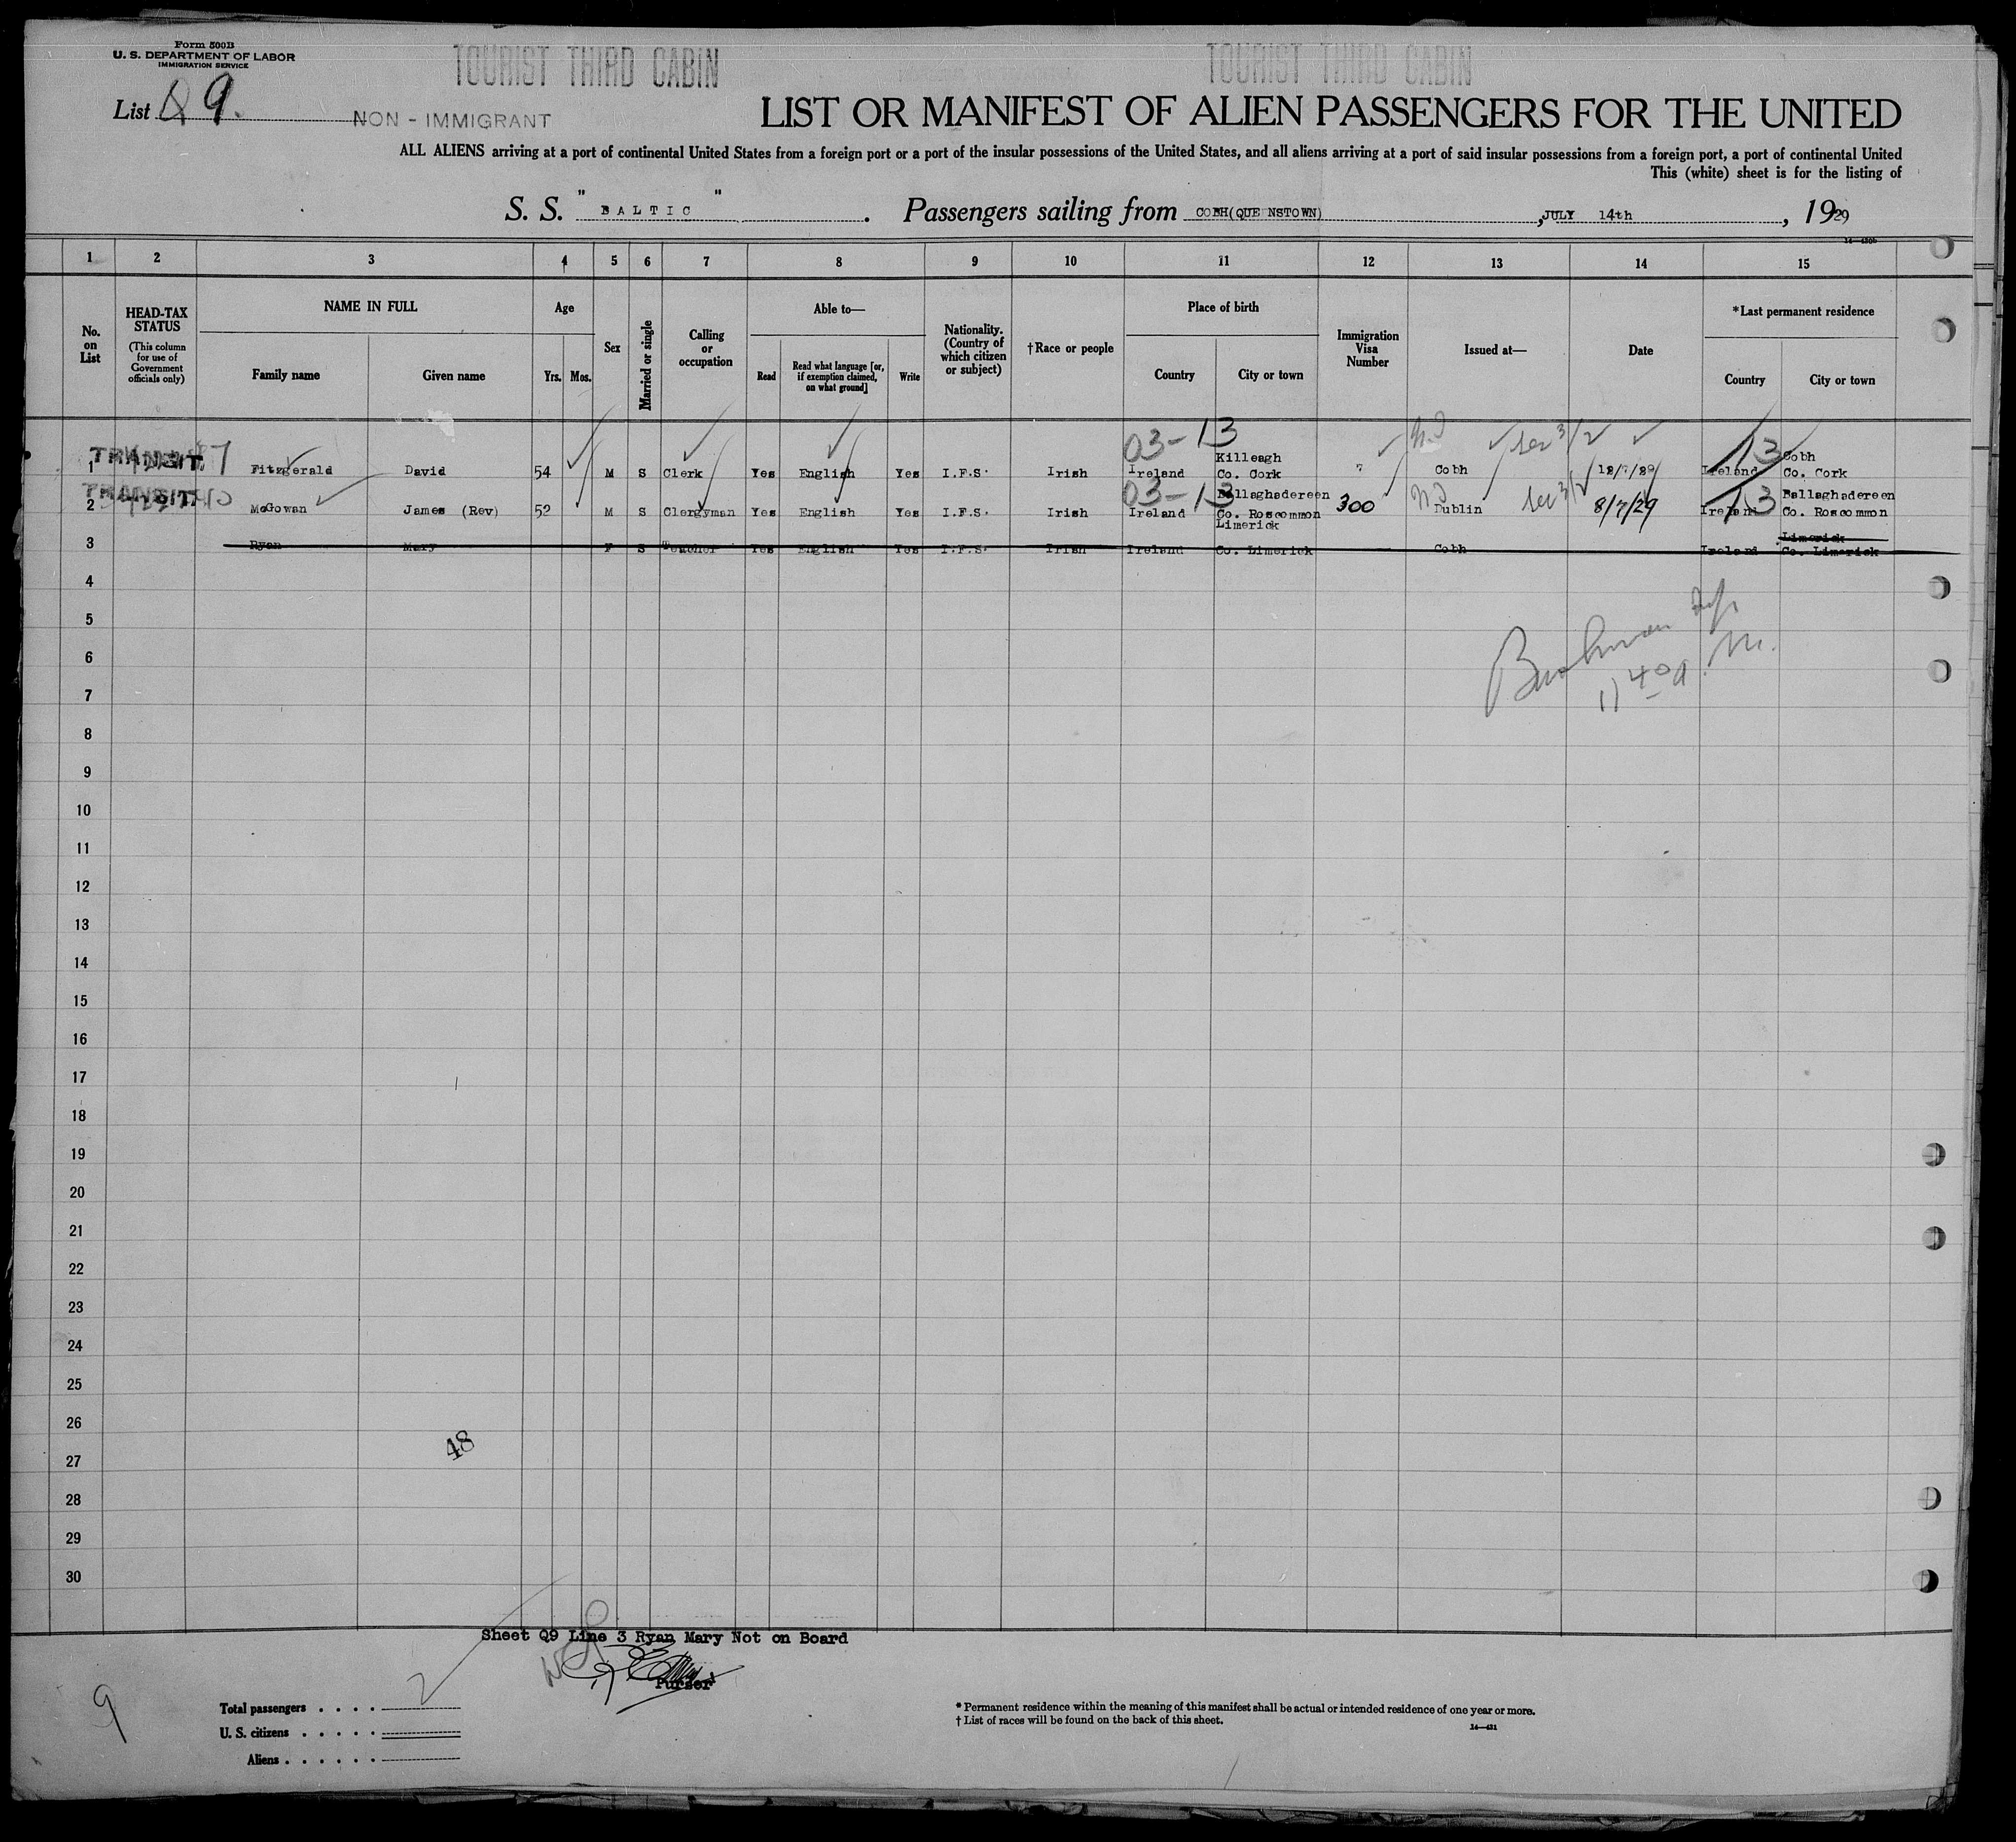 Form 500B
U. S. DEPARTMENT OF LABOR
IMMIGRATION SERVICE
TOURIST THIRD CABIN TOURIST THIRD CABIN
List Q 9. NON - IMMIGRANT
LIST OR MANIFEST OF ALIEN PASSENGERS FOR THE UNITED
ALL ALIENS arriving at a port of continental United States from a foreign port or a port of the insular possessions of the United States, and all aliens arriving at a port of said insular possessions from a foreign port, a port of continental United
This (white) sheet is for the listing of
S. S. "BALTIC". Passengers sailing from COBH(QUEENSTOWN), JULY 14th, 1929
1 2 3 4 5 6 7 8 9 10 11 12 13 14 15
No. on List
HEAD-TAX STATUS
(This column for use of Government officials only)
NAME IN FULL
Family name Given name
Age
Yrs. Mos.
Sex
Married or single
Calling or occupation
Able to—
Read
Read what language [or, if exemption claimed, on what ground]
Write
Nationality. (Country of which citizen or subject)
†Race or people
Place of birth
Country City or town
Immigration Visa Number
Issued at—
Date
*Last permanent residence
Country City or town
03-13 Killeagh 13 Cobh
1 TRANSIT. Fitzgerald David 54 M S Clerk Yes English Yes I.F.S. Irish Ireland Co. Cork 7 Cobh Sec 3/2 12/7/29 Ireland Co. Cork
03-13 Ballaghadereen 13 Ballaghadereen
2 TRANSIT. McGowan James (Rev) 52 M S Clergyman Yes English Yes I.F.S. Irish Ireland Co. Roscommon 300 Dublin Sec 3/2 8/7/29 Ireland Co. Roscommon
Limerick Limerick
3 Ryan Mary F S Teacher Yes English Yes I.F.S. Irish Ireland Co. Limerick Cobh Ireland Co. Limerick
4
5
6
7
8
9
10
11
12
13
14
15
16
17
18
19
20
21
22
23
24
25
26
48
27
28
29
30
Sheet Q9 Line 3 Ryan Mary Not on Board
Purser
9
Total passengers . . . . 2
U. S. citizens . . . . .
Aliens . . . . . .
* Permanent residence within the meaning of this manifest shall be actual or intended residence of one year or more.
† List of races will be found on the back of this sheet.
14—431